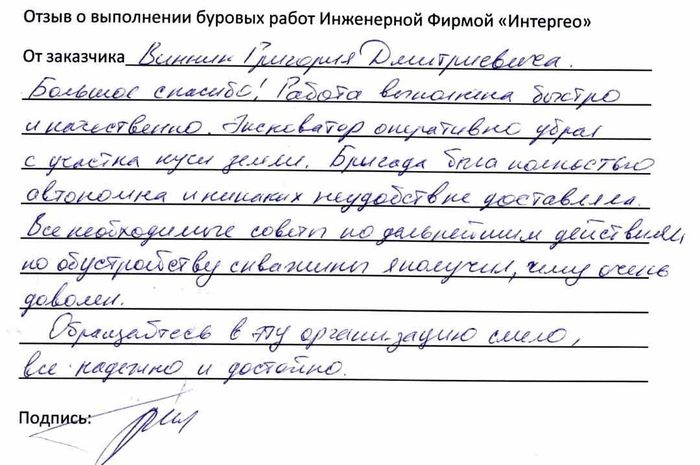 Отзыв о выполнении буровых работ Инженерной Фирмой «Интергео»
От заказчика Винник Григория Дмитриевича.
Большое спасибо! Работа выполнена быстро
и качественно. Экскаватор оперативно убрал
с участка кучи земли. Бригада была полностью
автономна и никаких неудобств не доставляла.
Все необходимые советы по дальнейшим действиям,
по обустройству скважины я получил, чему очень
доволен.
Обращайтесь в эту организацию смело,
все надежно и достойно.
Подпись: